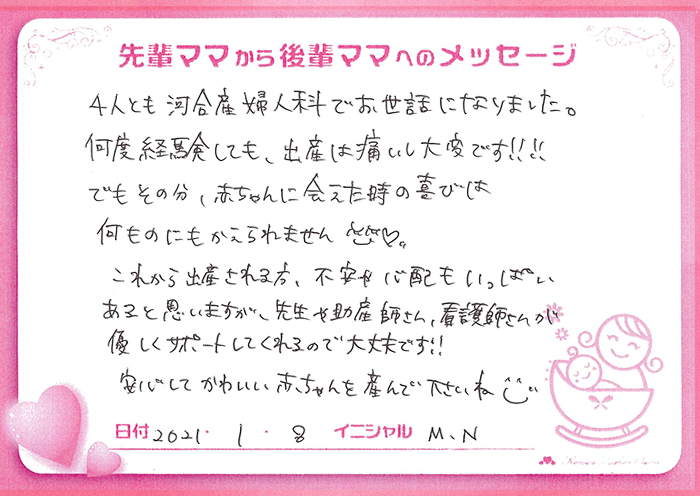 先輩ママから後輩ママへのメッセージ
4人とも河合産婦人科でお世話になりました。
何度経験しても、出産は痛いし大変です!!!!
でもその分、赤ちゃんに会えた時の喜びは
何ものにもかえられません
これから出産される方、不安や心配もいっぱい
あると思いますが、先生や助産師さん、看護師さんが
優しくサポートしてくれるので大丈夫です!!
安心してかわいい赤ちゃんを産んで下さいね
日付 2021・1・8 イニシャル M.N